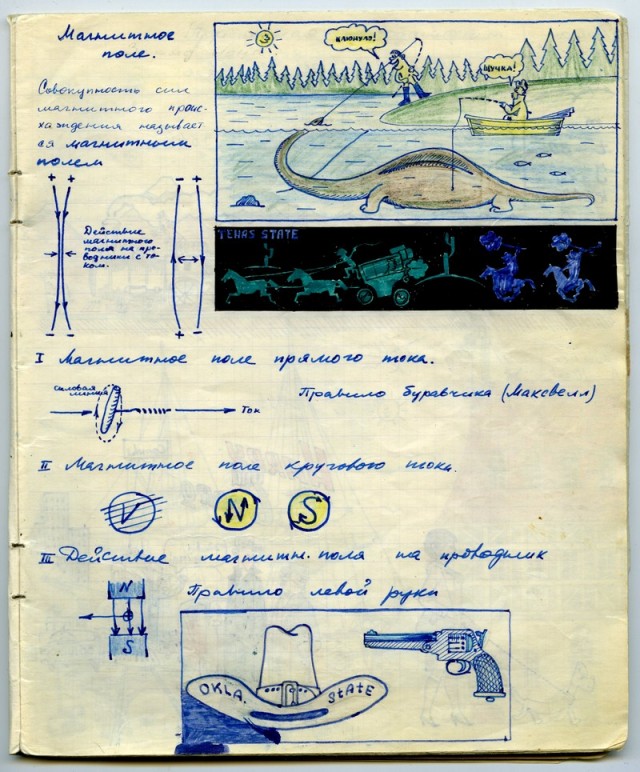 Магнитное
поле.
Совокупность сил
магнитного проис-
хождения называет
ся магнитным
полем
КЛЮНУЛО!
ЩУЧКА!
+ +
- +
Действие
магнитного
поля на про-
водники с то-
ком.
- -
+ -
TEXAS STATE
I Магнитное поле прямого тока.
силовая
линия
Ток
Правило буравчика (Максвелл)
II Магнитное поле кругового тока.
N
S
III Действие магнитн. поля на проводник
Правило левой руки
N
S
OKLA. STATE